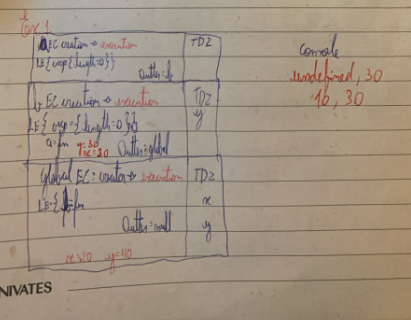 Ex 1
a EC creation → execution
TDZ
LE{ args{length:0}}
Outter: b
b EC creation → execution
TDZ
LE{ args={length:0}}
y
a=fn
y=30
x=20
Outter=global
Global EC: creation → execution
TDZ
LE{ fn
x
Outter=null
y
x=20 y=40
console
undefined, 30
10, 30
NIVATES